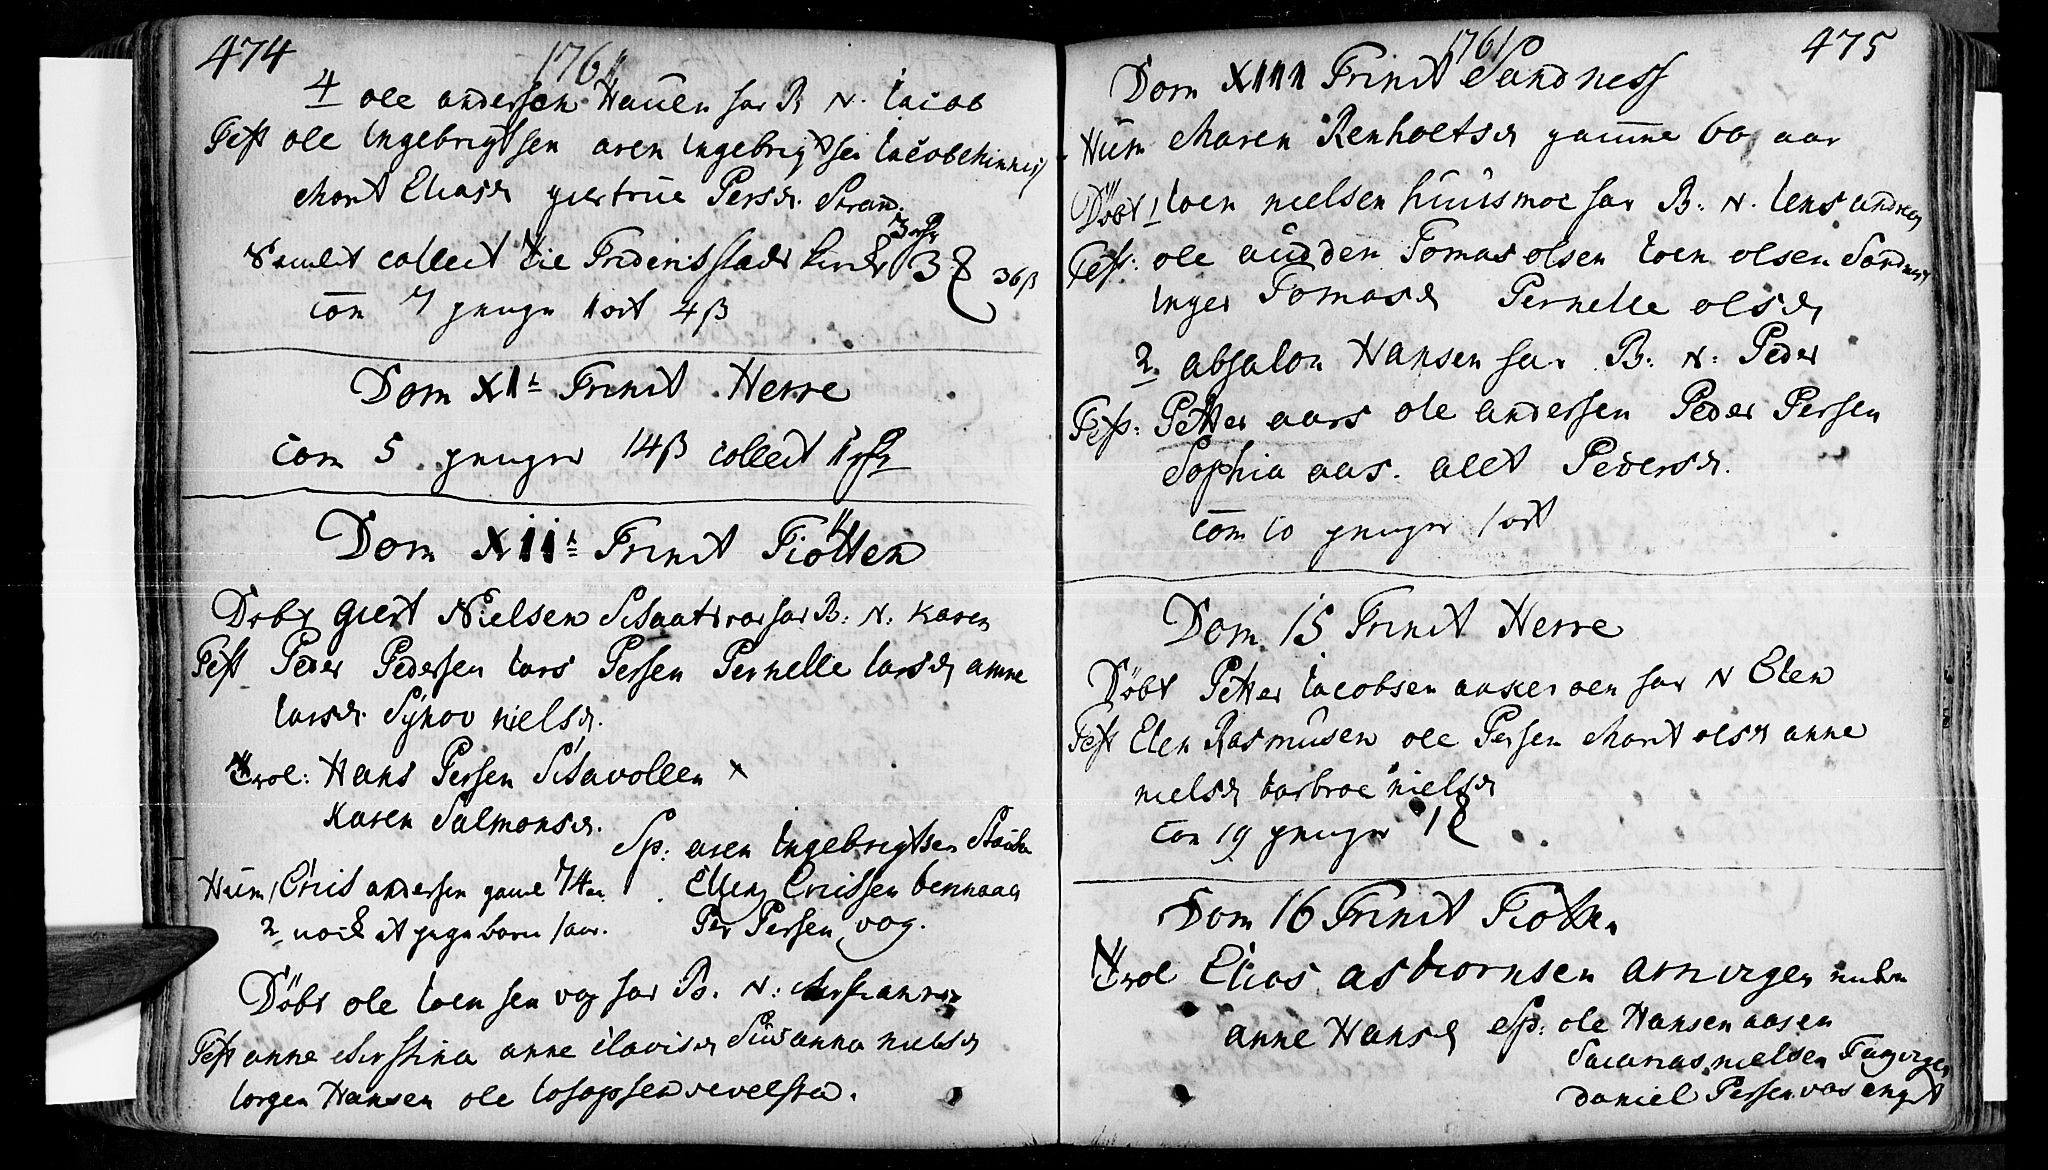 474
1761
4 ole andersen Hauen far B N. Iacob
Test ole Ingebrigtsen aren Ingebrigtsen Iacob
Marit Eliasd giertrue Persd. Strand.
Samlet collect Fridericsstads kirke 3
com 7 penger 1 ort 4 ß 36 ß
Dom XI Trinit Herre
com 5 penger 14 ß collect
Dom Xii Trinit Tiötten
Döbt giert Nielsen far B: N: karen
Test Peder Pedersen Lars Persen Pernelle Larsd anne
Larsd. Synov nielsd.
Trol: Hans Persen Silavollen x
Karen Salmonsd.
Sp: aren Ingebrigtsen
Hum 1 Cnis andersen gamel 74
Ellen Cnissen bennaas
2 nock et pige barn 1 aar.
Per Persen vog.
Döbt ole Ioensen vog far B. N:
Test anne kirstina anne Clavisd Susanna nielsd
Iorgen Hansen ole Iosapsen revelsta.
475
1761
Dom XIII Trinit Sandness
Hum Maren Renholtsd gamme 60 aar
Döbt 1 Ioen nielsen huusmoe far B. N. Iens andreas
Test: ole audden Tomas olsen Ioen olsen Sandnes
Inger Tomasd Pernelle olsd
2. absalon Hansen far B: N: Peder
Test: Petter aars ole andersen Peder Persen
Sophia aas. alet Pedersd.
com 10 penger 1 ort
Dom 15 Trinit Herre
Döbt Petter Iacobsen aaker oen far N Elen
Test Elen Rasmusen ole Persen Marit olsd anne
nielsd barbroe nielsd
com 19 penger 1
Dom 16 Trinit Tiotten
Trol Elias asbiornsen
anne Hansd Sp: ole Hansen aasen
Sacarias nielsen
Daniel Persen